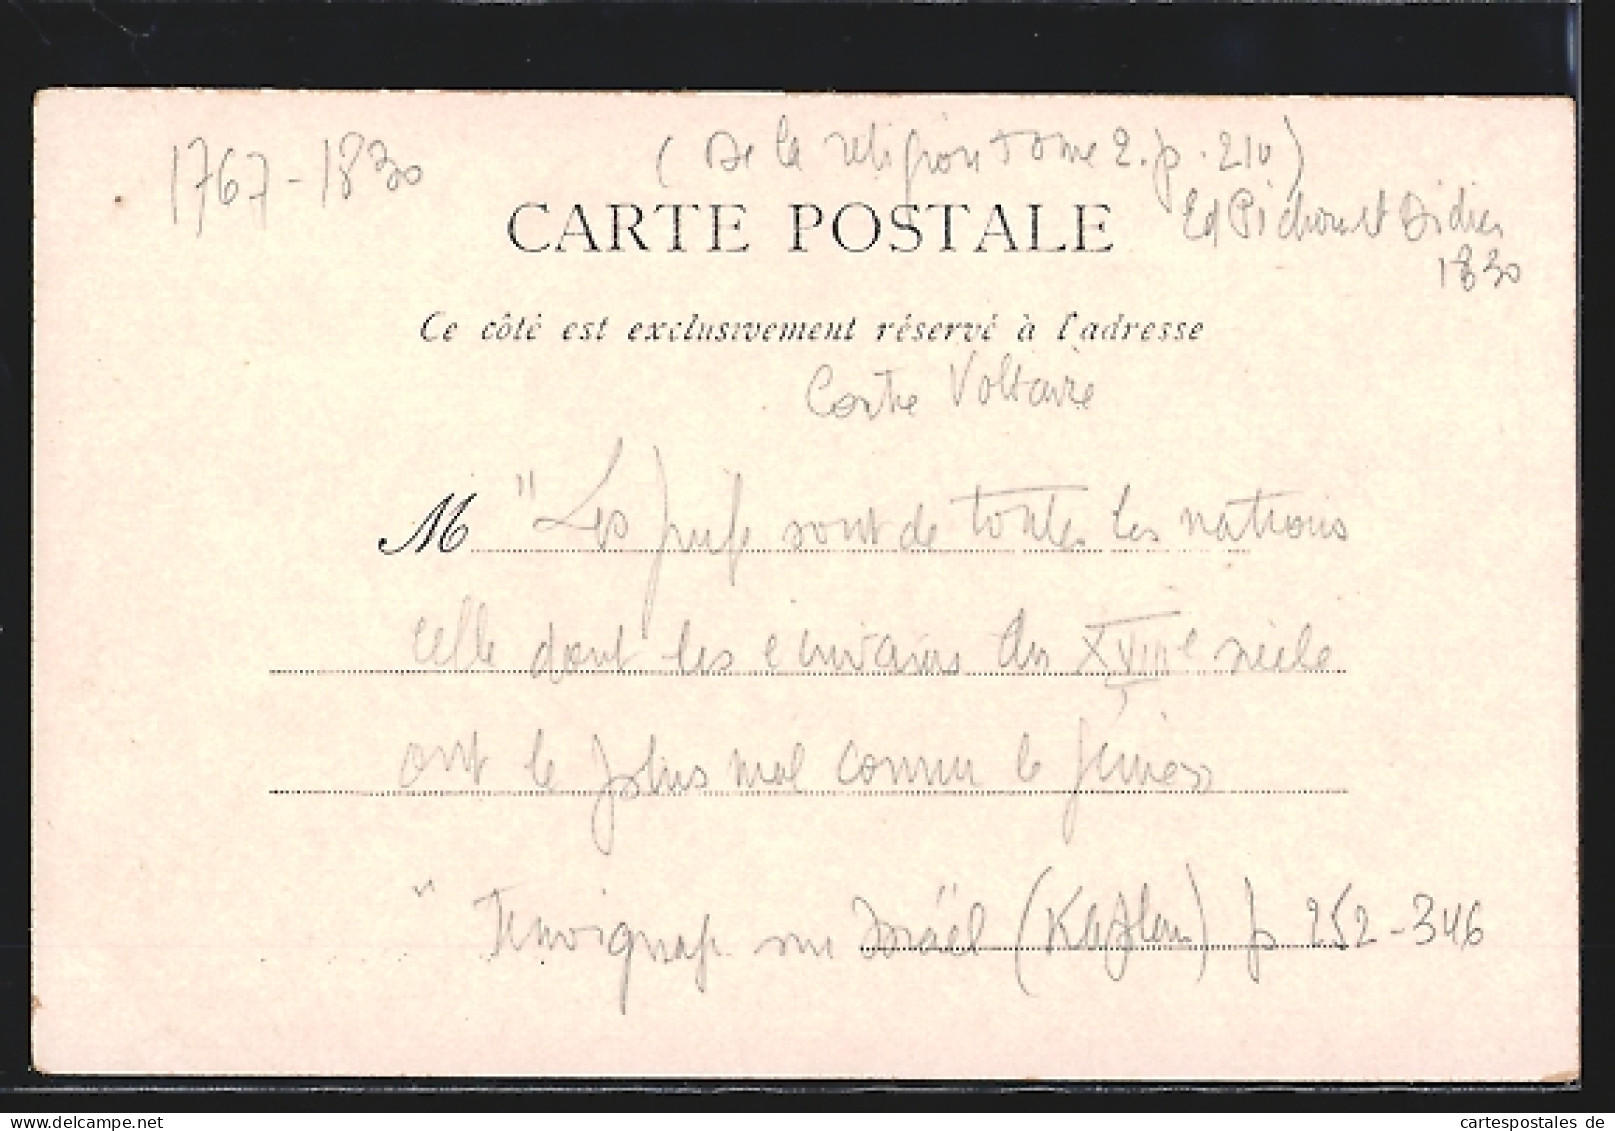 1767-1830
(De la religion Tome 2. p. 210)
Ed Pichon et Didier
1830
CARTE POSTALE
Ce côté est exclusivement réservé à l'adresse
Contre Voltaire
M "Les juifs sont de toutes les nations
celle dont les ecrivains du XVIIIe siècle
ont le plus mal connu le
" Temoignages sur Israël (Kaplan) p 252-346
cartespostales de